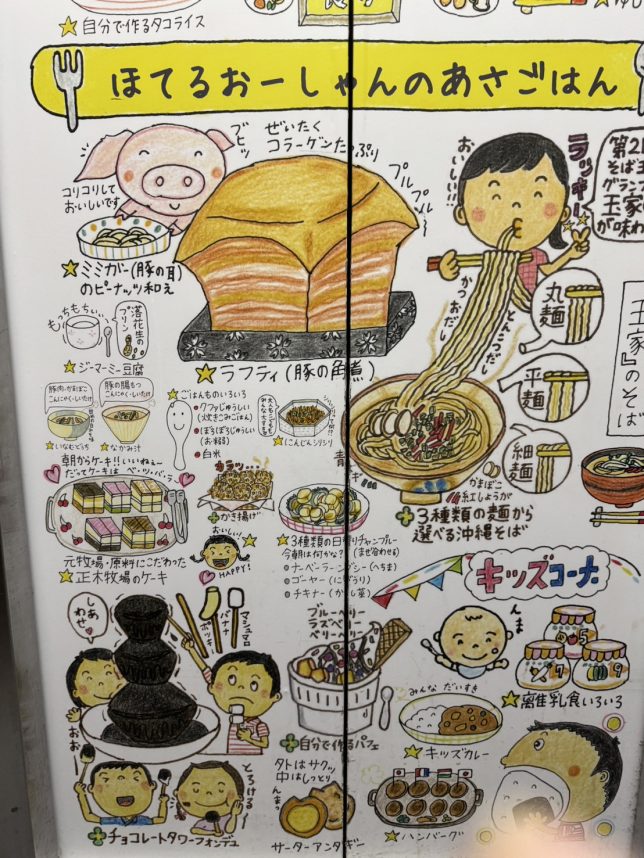 ★自分で作るタコライス
ほてるおーしゃんのあさごはん
ブヒッ
ぜいたく
コラーゲンたっぷり
プルプル
コリコリして
おいしいです
★ミミガー(豚の耳)
のピーナッツ和え
もっちもちぃ
落花生の
プリン
★ジーマーミー豆腐
★ラフティ(豚の角煮)
おいしい!!
ラッキー
かつおだし
とんこつだし
丸麺
平麺
細麺
かまぼこ
紅しょうが
3種類の麺から
選べる沖縄そば
王家』のそば
豚肉・かまぼこ
こんにゃく・しいたけ
★いなむどぅち
豚の腸もつ
こんにゃく・しいたけ
★なかみ汁
★ごはんものいろいろ
●クファじゅうしぃ
(炊きこみごはん)
●ぼろぼろじゅうしい
(お粥)
●白米
★にんじんシリシリ
朝からケーキ!!いいねぇ〜
だってケーキは ベ・ツ・バ・ラ
元牧場・原料にこだわった
★正木牧場のケーキ
カラッ
かき揚げ
おいしい
HAPPY!
★3種類の日替りチャンプルー
今朝は何かな?(まぜ合わせる)
○ナーベラーンブシー(へちま)
○ゴーヤー(にがうり)
○チキナー(からし菜)
キッズコーナー
んま
5
7
9
★離乳食いろいろ
みんな だいすき
★キッズカレー
★ハンバーグ
しあわせ
マシュマロ
バナナ
ポッキー
おお
とろける〜
チョコレートタワーフォンデュ
ブルーベリー
ラズベリー
ベリーベリー
自分で作るパフェ
外はサクッ
中はしっとり
んまっ
サーターアンダギー